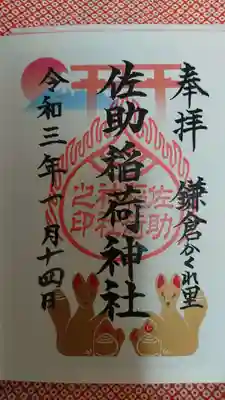 奉拝
鎌倉かくれ里
佐助稲荷神社
令和三年十月十四日
佐助
稲荷
神社
之印